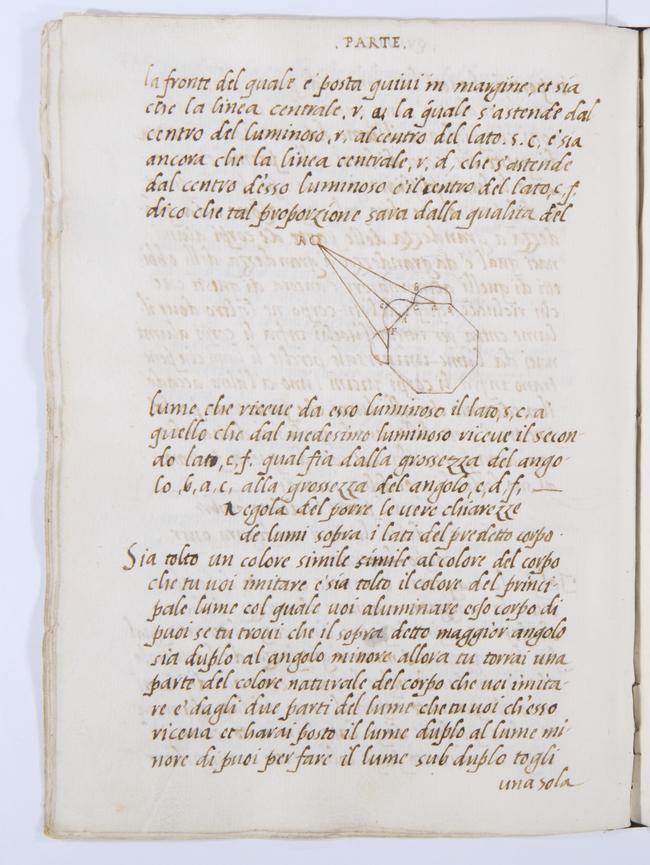 . PARTE.
la fronte del quale e posta quivi in margine, et sia
che la linea centrale, r, a, la quale s'astende dal
centro del luminoso, r, al centro del lato, s, c, e sia
ancora che la linea centrale, r, d, che s'astende
dal centro d'esso luminoso e il centro del lato, c, f,
dico che tal proporzione sara dalla qualita del
lume che riceve da esso luminoso il lato, s, c, a
quello che dal medesimo luminoso riceve il secon-
do lato, c, f, qual fia dalla grossezza del ango-
lo, b, a, c, alla grossezza del angolo, e, d, f,
Regola del porre le vere chiarezze
de lumi sopra i lati del predetto corpo.
Sia tolto un colore simile simile al colore del corpo
che tu voi imitare e sia tolto il colore del princi-
pale lume col quale voi aluminare esso corpo di
puoi se tu trovi che il sopra detto maggior angolo
sia duplo al angolo minore allora tu torrai una
parte del colore naturale del corpo che voi imita-
re e dagli due parti del lume che tu voi ch'esso
riceva et harai posto il lume duplo al lume mi-
nore di puoi per fare il lume sub duplo togli
una sola